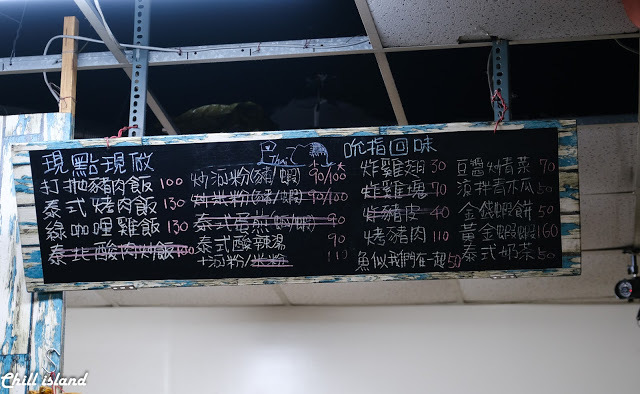 現點現做
打拋豬肉飯 100
泰式烤肉飯 130
綠咖哩雞飯 130
泰北酸肉炒飯 100
Thai
炒河粉(豬/蝦) 90/100
炒米粉(豬/蝦) 90/100
泰式蛋煎(蚵/蝦) 90
泰式酸辣湯 90
+河粉/米粉 110
吮指回味
炸雞翅 30
炸雞塊 70
炸豬皮 40
烤豬肉 110
魚似我們在一起 50
豆醬炒青菜 70
涼拌青木瓜 50
金錢蝦餅 50
黃金蝦蝦 160
泰式奶茶 50
Chill island